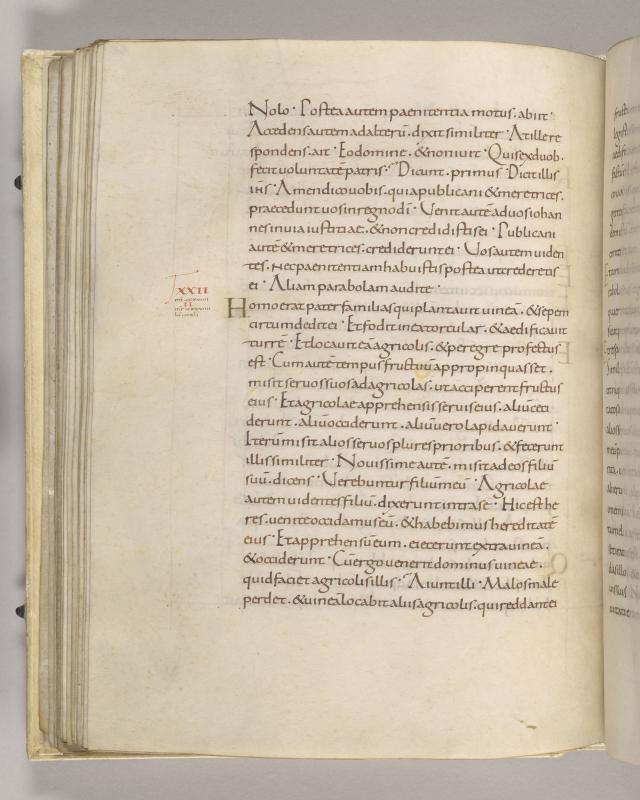 Nolo · Postea autem paenitentia motus. abiit ·
Accedens autem ad alterū. dixit similiter · At ille re
spondens. ait · Eo domine. & non iuit · Quis ex duob·
fecit voluntatē patris · Dicunt. primus · Dicit illis
ihs · Amen dico uobis. quia publicani & meretrices.
praecedunt uos in regno dī · Uenit autē ad uos iohan
nes in uia iustitiae. & non credidistis ei · Publicani
autē & meretrices. crediderunt ei · Uos autem uiden
tes. nec paenitentiam habuistis postea ut crederetis
ei · Aliam parabolam audite ·
XXII
II
Homo erat pater familias qui plantauit uineā. & sepem
circumdedit ei · Et fodit in ea torcular. & aedificauit
turrē · Et locauit eā agricolis. & peregre profectus
est · Cum autē tempus fructuū appropinquasset.
misit seruos suos ad agricolas. ut acciperent fructus
eius · Et agricolae apprehensis seruis eius. aliū ceci
derunt. aliū occiderunt. aliū uero lapidauerunt ·
Iterū misit alios seruos plures prioribus. & fecerunt
illis similiter · Nouissime autē. misit ad eos filiū
suū. dicens · Uerebuntur filiū meū · Agricolae
autem uidentes filiū. dixerunt intra se · Hic est he
res. uenite occidamus eū. & habebimus hereditatē
eius · Et apprehensū eum. eiecerunt extra uineā.
& occiderunt · Cū ergo uenerit dominus uineae.
quid faciet agricolis illis · Aiunt illi · Malos male
perdet. & uineā locabit aliis agricolis. qui reddant ei